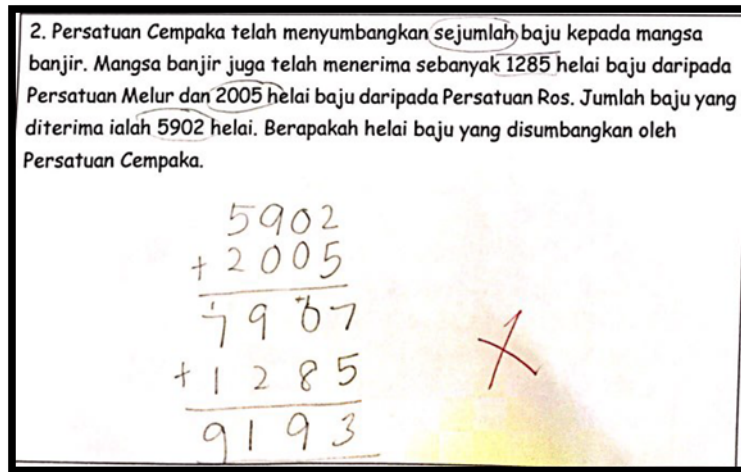 2. Persatuan Cempaka telah menyumbangkan sejumlah baju kepada mangsa
banjir. Mangsa banjir juga telah menerima sebanyak 1285 helai baju daripada
Persatuan Melur dan 2005 helai baju daripada Persatuan Ros. Jumlah baju yang
diterima ialah 5902 helai. Berapakah helai baju yang disumbangkan oleh
Persatuan Cempaka.
5902
+ 2005
7907
+ 1285
9193